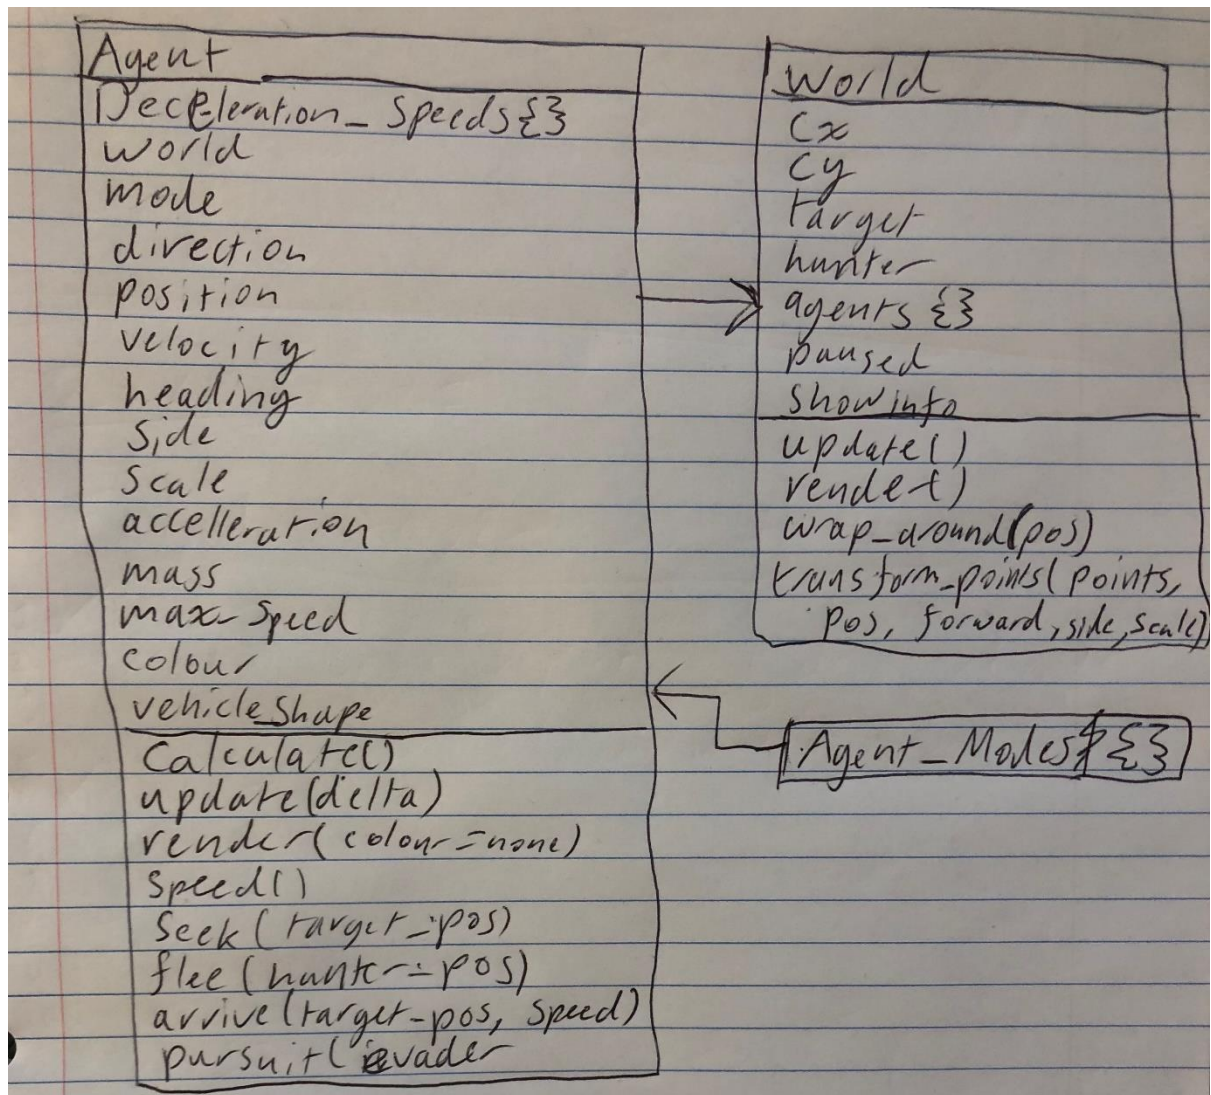 Agent
Deceleration_Speeds{}
world
mode
direction
position
velocity
heading
side
scale
accelleration
mass
max_speed
colour
vehicle_shape
Calculate()
update(delta)
render(colour=none)
speed()
seek(target_pos)
flee(hunter_pos)
arrive(target_pos, speed)
pursuit(evader
World
cx
cy
target
hunter
agents {}
paused
showinfo
update()
render()
wrap_around(pos)
transform_points(points,
pos, forward, side, scale)
Agent_Modes {}